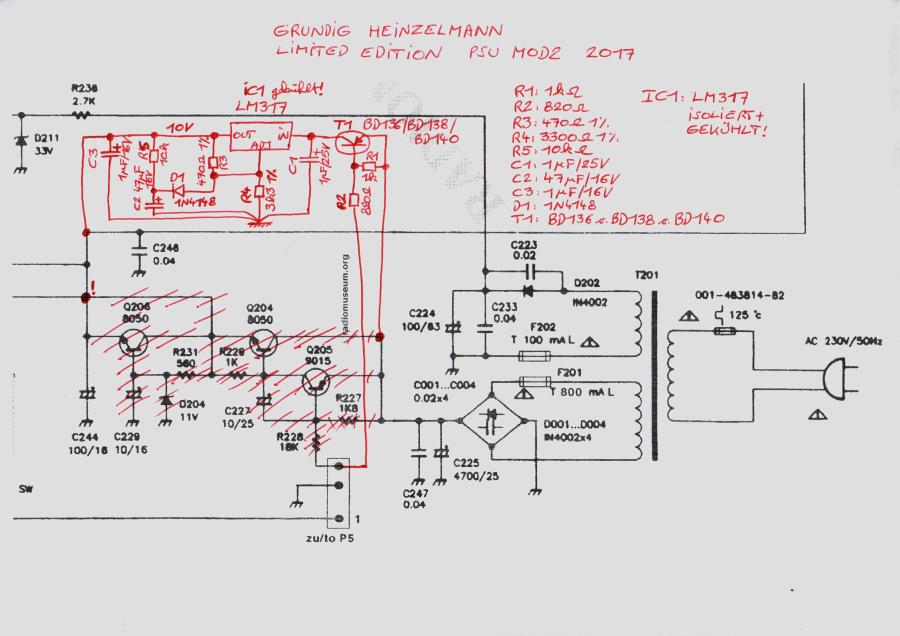 GRUNDIG HEINZELMANN
LIMITED EDITION PSU MOD2 2017
R236
2.7K
D211
33V
IC1 gekühlt!
LM317
10V
OUT
IN
ADJ
T1
BD136/BD138/
BD140
C3
1µF/16V
R5
10k
C2 47µF
16V
D1
1N4148
470Ω 1%
R3
R4
3k3
1%
C1
1µF/25V
R1
1k
R2
820Ω
R1: 1kΩ
R2: 820Ω
R3: 470Ω 1%
R4: 3300Ω 1%
R5: 10kΩ
C1: 1µF/25V
C2: 47µF/16V
C3: 1µF/16V
D1: 1N4148
T1: BD136 o. BD138 o. BD140
IC1: LM317
ISOLIERT +
GEKÜHLT!
C246
0.04
radiomuseum.org
C223
0.02
D202
IN4002
T201
C224
100/63
C233
0.04
F202
T 100 mAL
001-483814-82
125 °c
AC 230V/50Hz
!
Q206
8050
Q204
8050
Q205
9015
R231
560
R229
1K
R227
1K8
D204
11V
C227
10/25
R228
18K
C244
100/16
C229
10/16
C001...C004
0.02x4
F201
T 800 mAL
D001...D004
IN4002x4
C225
4700/25
C247
0.04
SW
1
zu/to P5